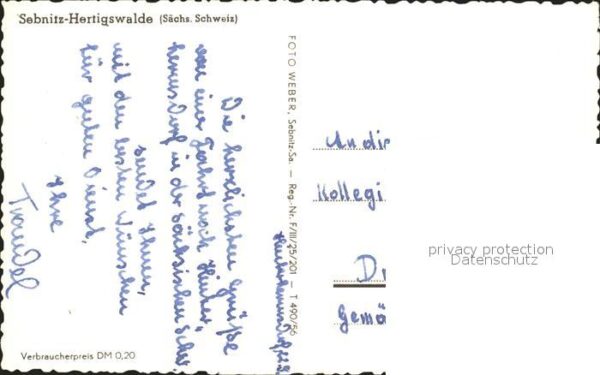 Sebnitz-Hertigswalde (Sächs. Schweiz)
Die herzlichsten Grüße
von einer Fahrt nach Hinter-
hermsdorf in der Sächsischen Schw.
sendet Ihnen,
mit den besten Wünschen
für guten Dienst,
Ihre
Traudel
FOTO WEBER, Sebnitz-Sa. — Reg.-Nr. F/III/25/201 — T 490/56
Hinterhermsdorf
An di
Kollegi
D
Gemä
privacy protection
Datenschutz
Verbraucherpreis DM 0,20